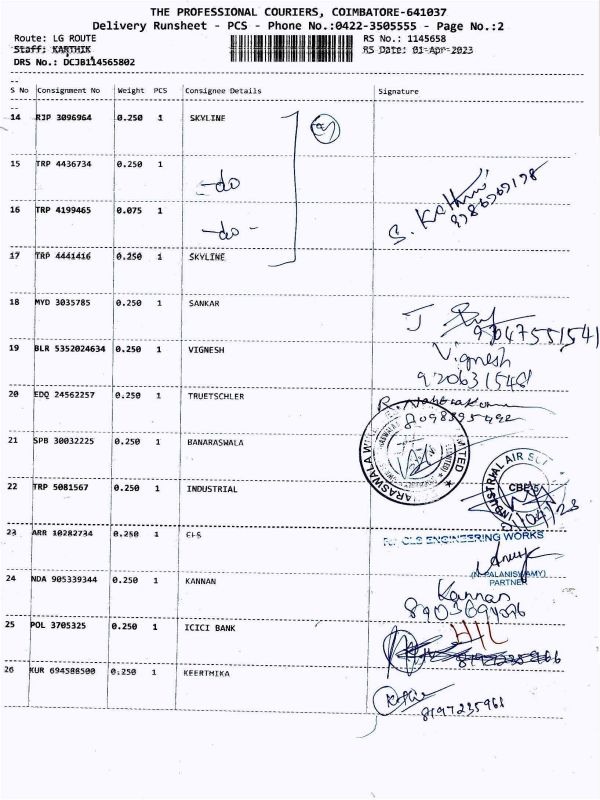 THE PROFESSIONAL COURIERS, COIMBATORE-641037
Delivery Runsheet - PCS - Phone No.:0422-3505555 - Page No.:2
Route: LG ROUTE RS No.: 1145658
Staff: KARTHIK RS Date: 01-Apr-2023
DRS No.: DCJB114565802
S No Consignment No Weight PCS Consignee Details Signature
14 RJP 3096964 0.250 1 SKYLINE
15 TRP 4436734 0.250 1 -do
16 TRP 4199465 0.075 1 -do-
17 TRP 4441416 0.250 1 SKYLINE
18 MYD 3035785 0.250 1 SANKAR
19 BLR 5352024634 0.250 1 VIGNESH Vignesh
20 EDQ 24562257 0.250 1 TRUETSCHLER
21 SPB 30032225 0.250 1 BANARASWALA
22 TRP 5081567 0.250 1 INDUSTRIAL
INDUSTRIAL AIR
CBE
23 ARR 10282734 0.250 1 CLS
CLS ENGINEERING WORKS
(N. PALANISWAMY)
PARTNER
24 NDA 905339344 0.250 1 KANNAN Kannan
25 POL 3705325 0.250 1 ICICI BANK
26 KUR 694588500 0.250 1 KEERTHIKA
8197235961